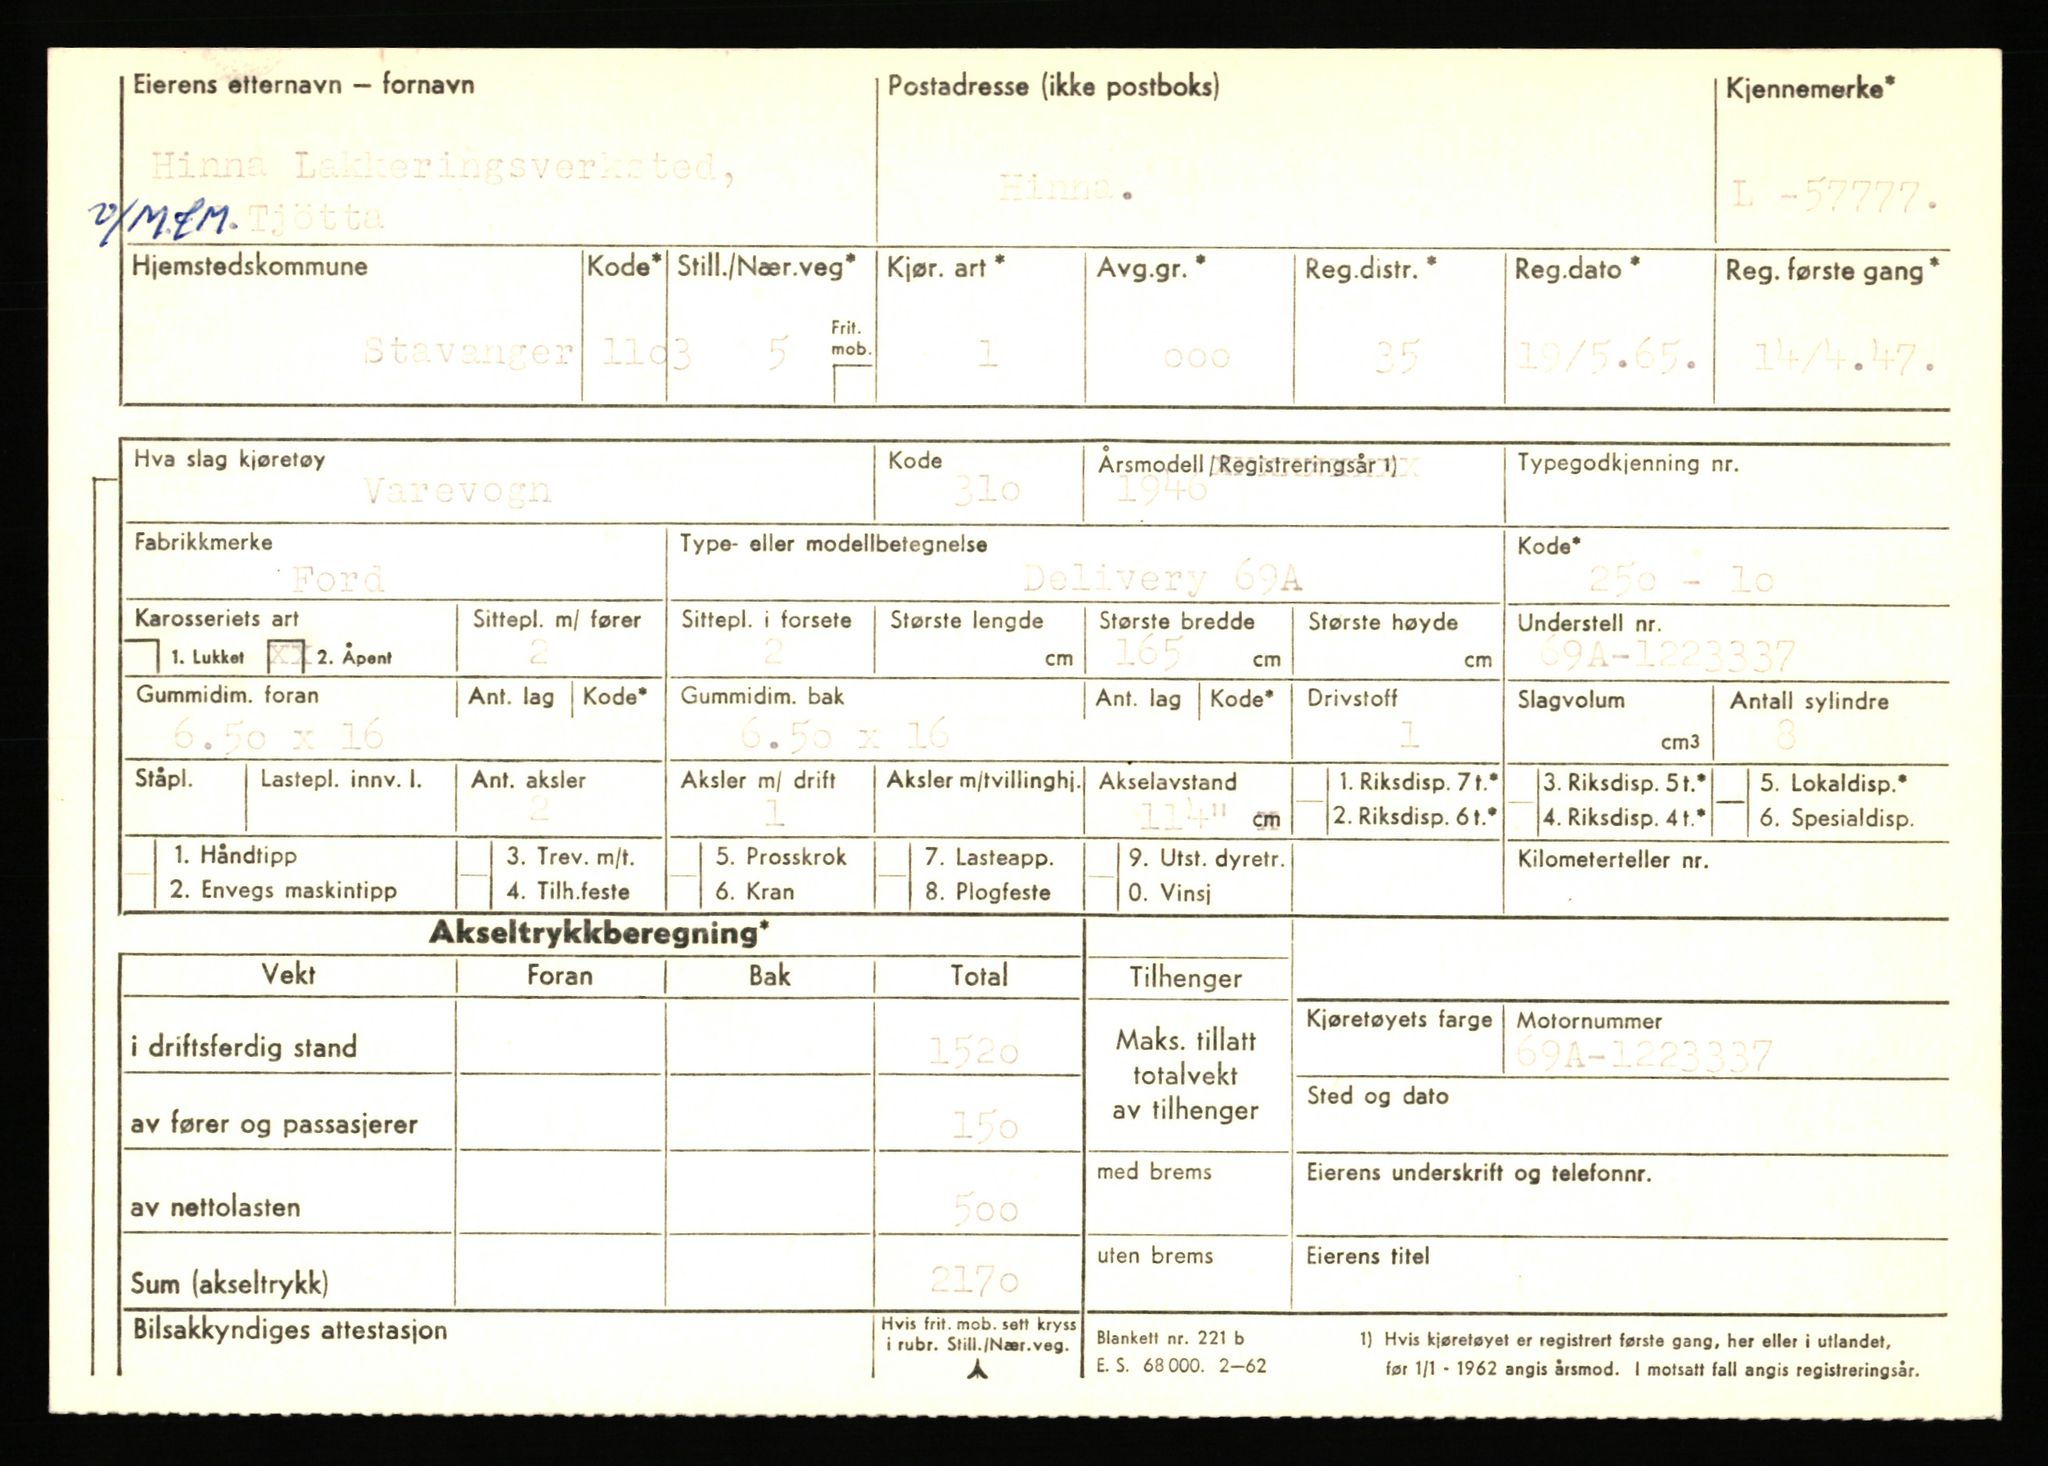 Eierens etternavn – fornavn
Postadresse (ikke postboks)
Kjennemerke*
Hinna Lakkeringsverksted,
Tjötta
Hinna.
L -57777.
Hjemstedskommune
Kode*
Still./Nær.veg*
Kjør. art *
Avg.gr. *
Reg.distr. *
Reg.dato *
Reg. første gang*
Stavanger
11o3
5
Frit. mob.
1
ooo
35
19/5.65.
14/4.47.
Hva slag kjøretøy
Kode
Årsmodell/Registreringsår 1)
Typegodkjenning nr.
Varevogn
31o
1946
Fabrikkmerke
Type- eller modellbetegnelse
Kode*
Ford
Delivery 69A
25o - 1o
Karosseriets art
Sittepl. m/ fører
Sittepl. i forsete
Største lengde
Største bredde
Største høyde
Understell nr.
1. Lukket xx 2. Åpent
2
2
cm
165 cm
cm
69A-1223337
Gummidim. foran
Ant. lag
Kode*
Gummidim. bak
Ant. lag
Kode*
Drivstoff
Slagvolum
Antall sylindre
6.5o x 16
6.5o x 16
1
cm3
8
Ståpl.
Lastepl. innv. l.
Ant. aksler
Aksler m/ drift
Aksler m/tvillinghj.
Akselavstand
1. Riksdisp. 7 t.*
3. Riksdisp. 5 t.*
5. Lokaldisp.*
2
1
114" cm
2. Riksdisp. 6 t.*
4. Riksdisp. 4 t.*
6. Spesialdisp.
1. Håndtipp
3. Trev. m/t.
5. Prosskrok
7. Lasteapp.
9. Utst. dyretr.
Kilometerteller nr.
2. Envegs maskintipp
4. Tilh.feste
6. Kran
8. Plogfeste
0. Vinsj
Akseltrykkberegning*
Vekt
Foran
Bak
Total
Tilhenger
i driftsferdig stand
152o
Maks. tillatt
totalvekt
av tilhenger
Kjøretøyets farge
Motornummer
69A-1223337
av fører og passasjerer
15o
Sted og dato
av nettolasten
5oo
med brems
Eierens underskrift og telefonnr.
Sum (akseltrykk)
217o
uten brems
Eierens titel
Bilsakkyndiges attestasjon
Hvis frit. mob. sett kryss
i rubr. Still./Nær.veg.
Blankett nr. 221 b
E. S. 68 000. 2–62
1) Hvis kjøretøyet er registrert første gang, her eller i utlandet,
før 1/1 - 1962 angis årsmod. I motsatt fall angis registreringsår.